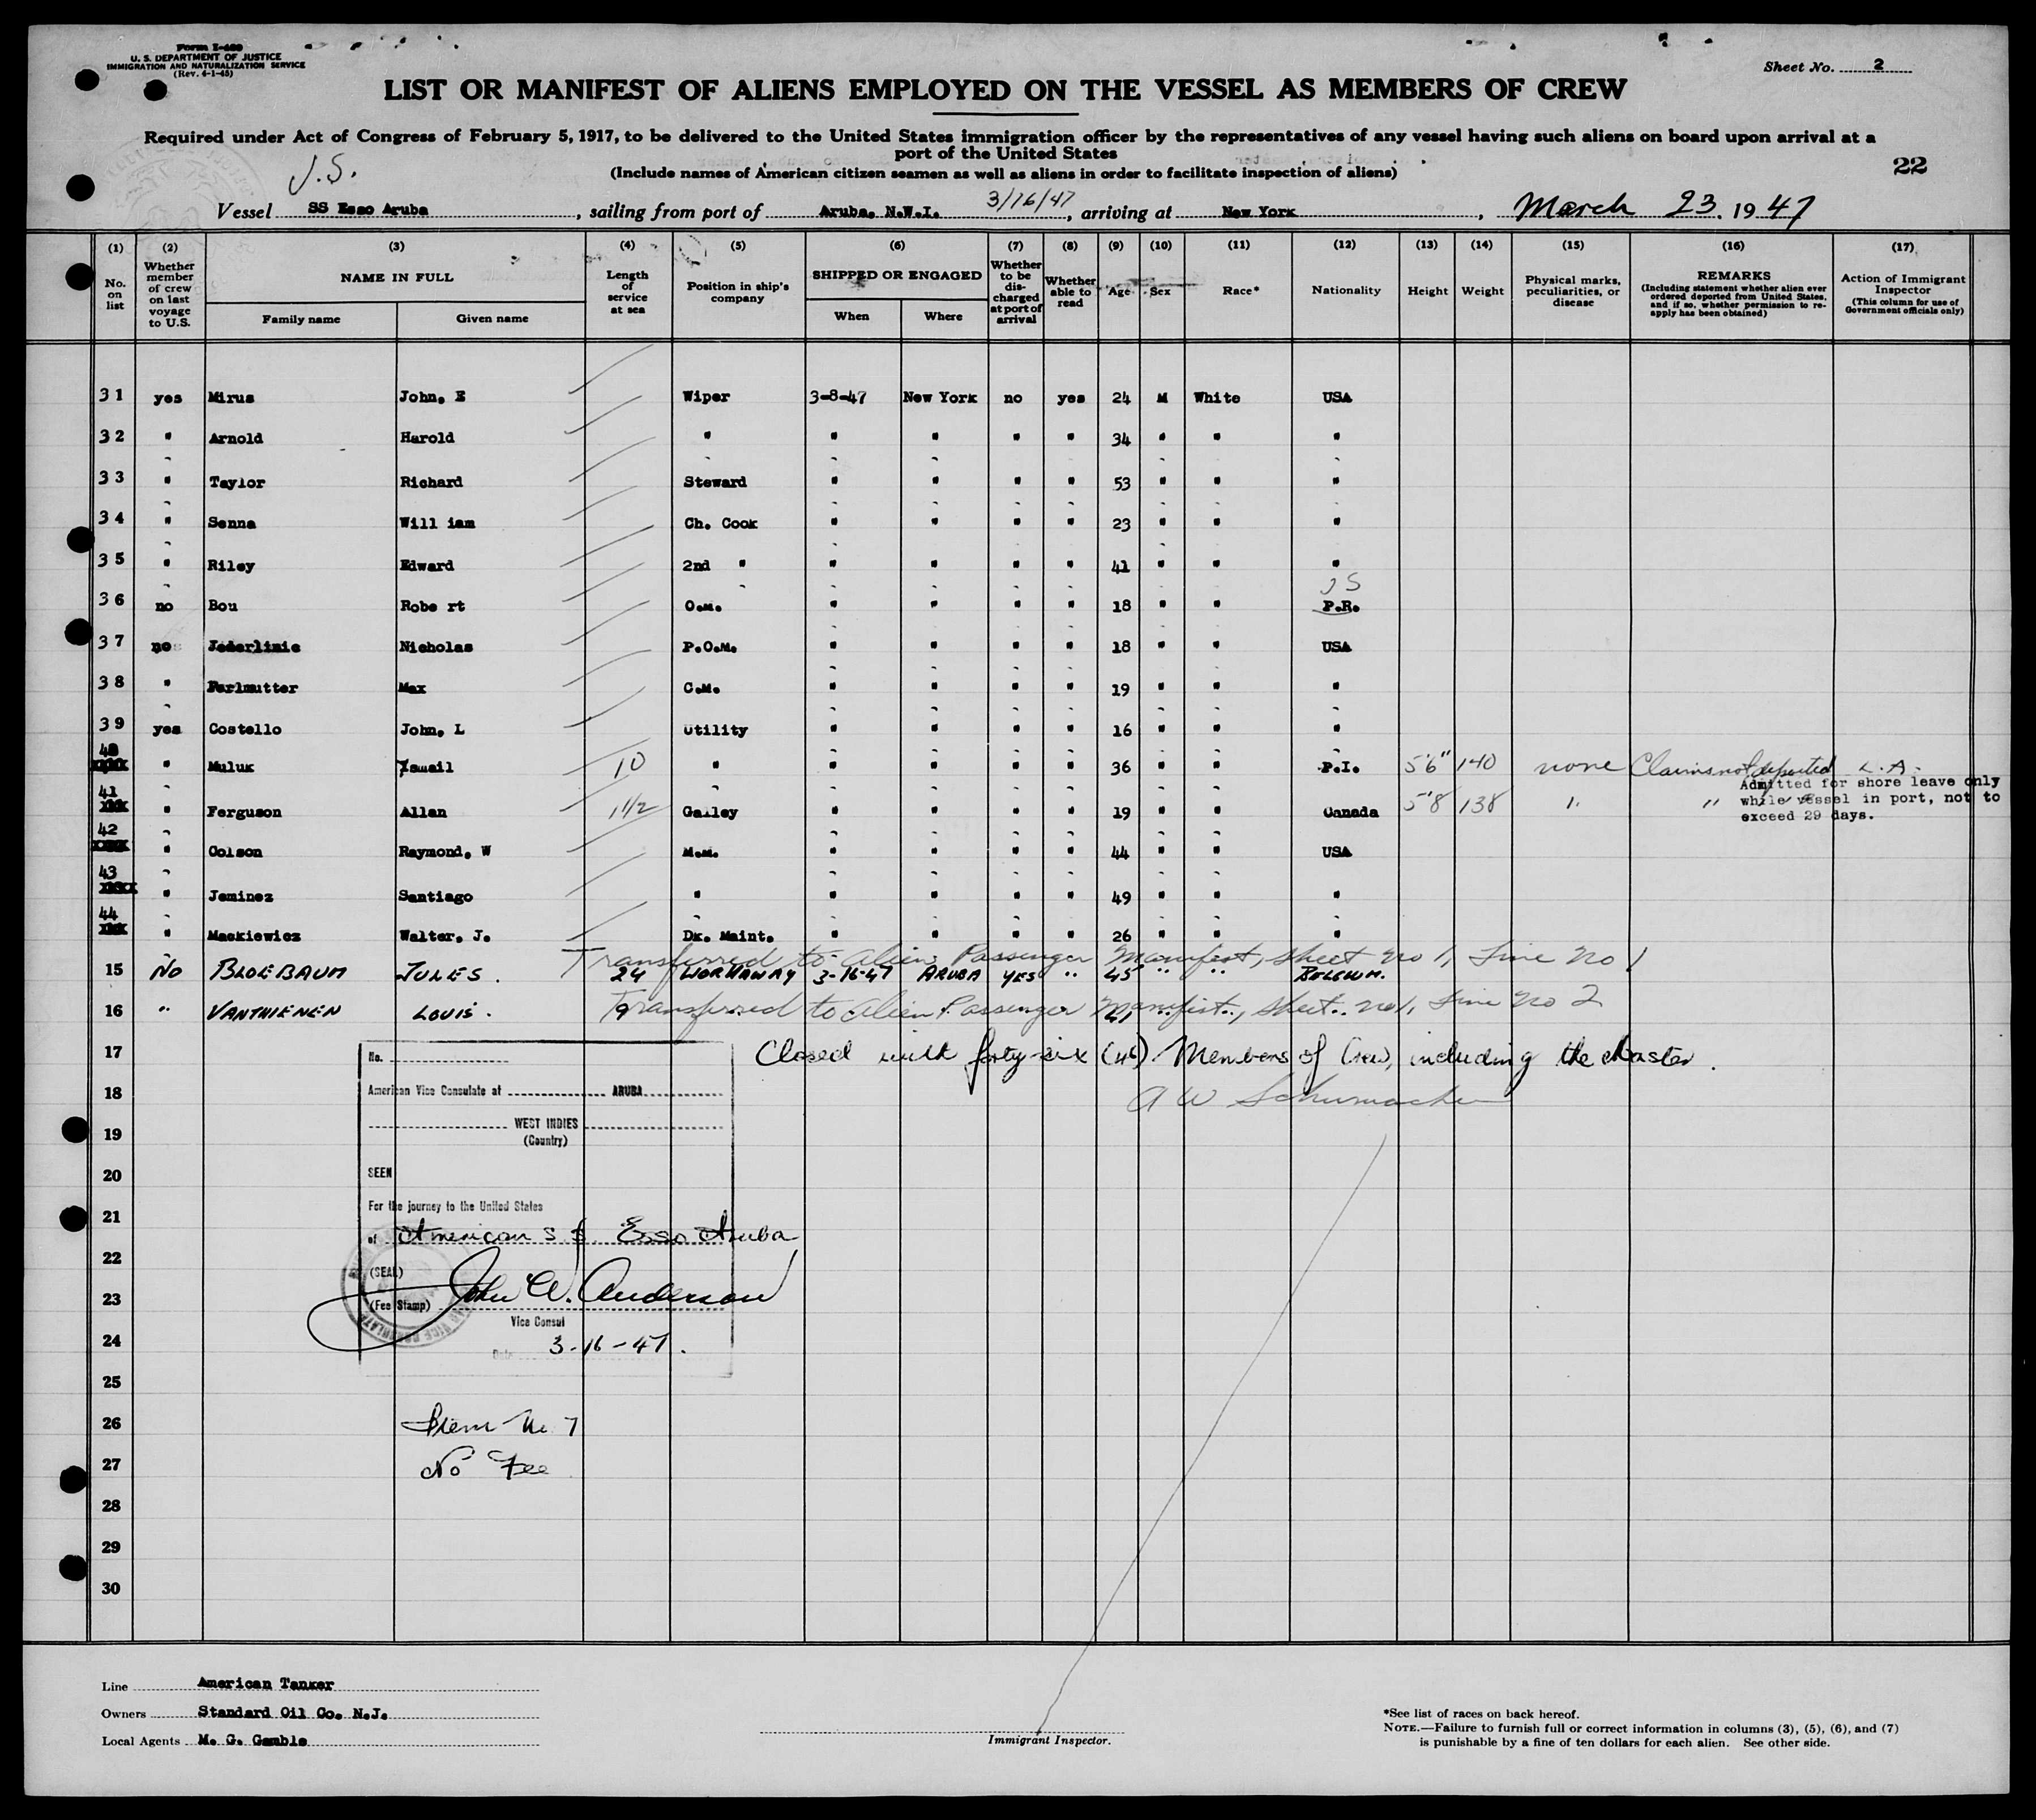 Form I-480
U. S. DEPARTMENT OF JUSTICE
IMMIGRATION AND NATURALIZATION SERVICE
(Rev. 4-1-45)
Sheet No. 2
LIST OR MANIFEST OF ALIENS EMPLOYED ON THE VESSEL AS MEMBERS OF CREW
Required under Act of Congress of February 5, 1917, to be delivered to the United States immigration officer by the representatives of any vessel having such aliens on board upon arrival at a
port of the United States
(Include names of American citizen seamen as well as aliens in order to facilitate inspection of aliens)
22
Vessel SS Esso Aruba, sailing from port of Aruba, N.W.I. 3/16/47, arriving at New York, March 23, 1947
(1) (2) (3) (4) (5) (6) (7) (8) (9) (10) (11) (12) (13) (14) (15) (16) (17)
No. on list
Whether member of crew on last voyage to U.S.
NAME IN FULL
Family name
Given name
Length of service at sea
Position in ship's company
SHIPPED OR ENGAGED
When
Where
Whether to be discharged at port of arrival
Whether able to read
Age
Sex
Race*
Nationality
Height
Weight
Physical marks, peculiarities, or disease
REMARKS
(Including statement whether alien ever ordered deported from United States, and if so, whether permission to reapply has been obtained)
Action of Immigrant Inspector
(This column for use of Government officials only)
31 yes Mirus John, E Wiper 3-8-47 New York no yes 24 M White USA
32 " Arnold Harold " " " " " 34 " " "
33 " Taylor Richard Steward " " " " 53 " " "
34 " Senna Will iam Ch. Cook " " " " 23 " " "
35 " Riley Edward 2nd " " " " " 41 " " "
36 no Bou Robe rt O.M. " " " " 18 " " P.R.
37 no Nicholas P.O.M. " " " " 18 " " USA
38 " Perlmutter Max C.M. " " " " 19 " " "
39 yes Costello John, L Utility " " " " 16 " " "
40 " Muluk Ismail 10 " " " " " 36 " " P.I. 5'6" 140 none Claims not deported L.A.
41 " Ferguson Allan 1 1/2 Galley " " " " 19 " " Canada 5'8 138 " "
Admitted for shore leave only
while vessel in port, not to
exceed 29 days.
42 " Colson Raymond, W M.M. " " " " 44 " " USA
43 " Jeminez Santiago " " " " " 49 " " "
44 " Mackiewicz Walter, J. Dk. Maint. " " " " 26 " " "
Transferred to Alien Passenger Manifest, sheet no 1, Line No 1
15 No BLOEBAUM JULES. 24 WORKAWAY 3-16-47 ARUBA YES " 45 " " BELGIUM.
Transferred to Alien Passenger Manifest, sheet no 1, Line No 2
16 " VANTHIENEN LOUIS.
17 Closed with forty-six (46) Members of Crew, including the Master.
18 A W Schumacher
19
20
21
22
23
24
25
26
27
28
29
30
No.
American Vice Consulate at ARUBA
WEST INDIES
(Country)
SEEN
For the journey to the United States
of American S S Esso Aruba
(SEAL)
John W. Anderson
(Fee Stamp)
Vice Consul
Date 3-16-47.
Item No 7
No Fee
Line American Tanker
Owners Standard Oil Co. N.J.
Local Agents M. G. Gamble
Immigrant Inspector.
*See list of races on back hereof.
NOTE.—Failure to furnish full or correct information in columns (3), (5), (6), and (7)
is punishable by a fine of ten dollars for each alien. See other side.